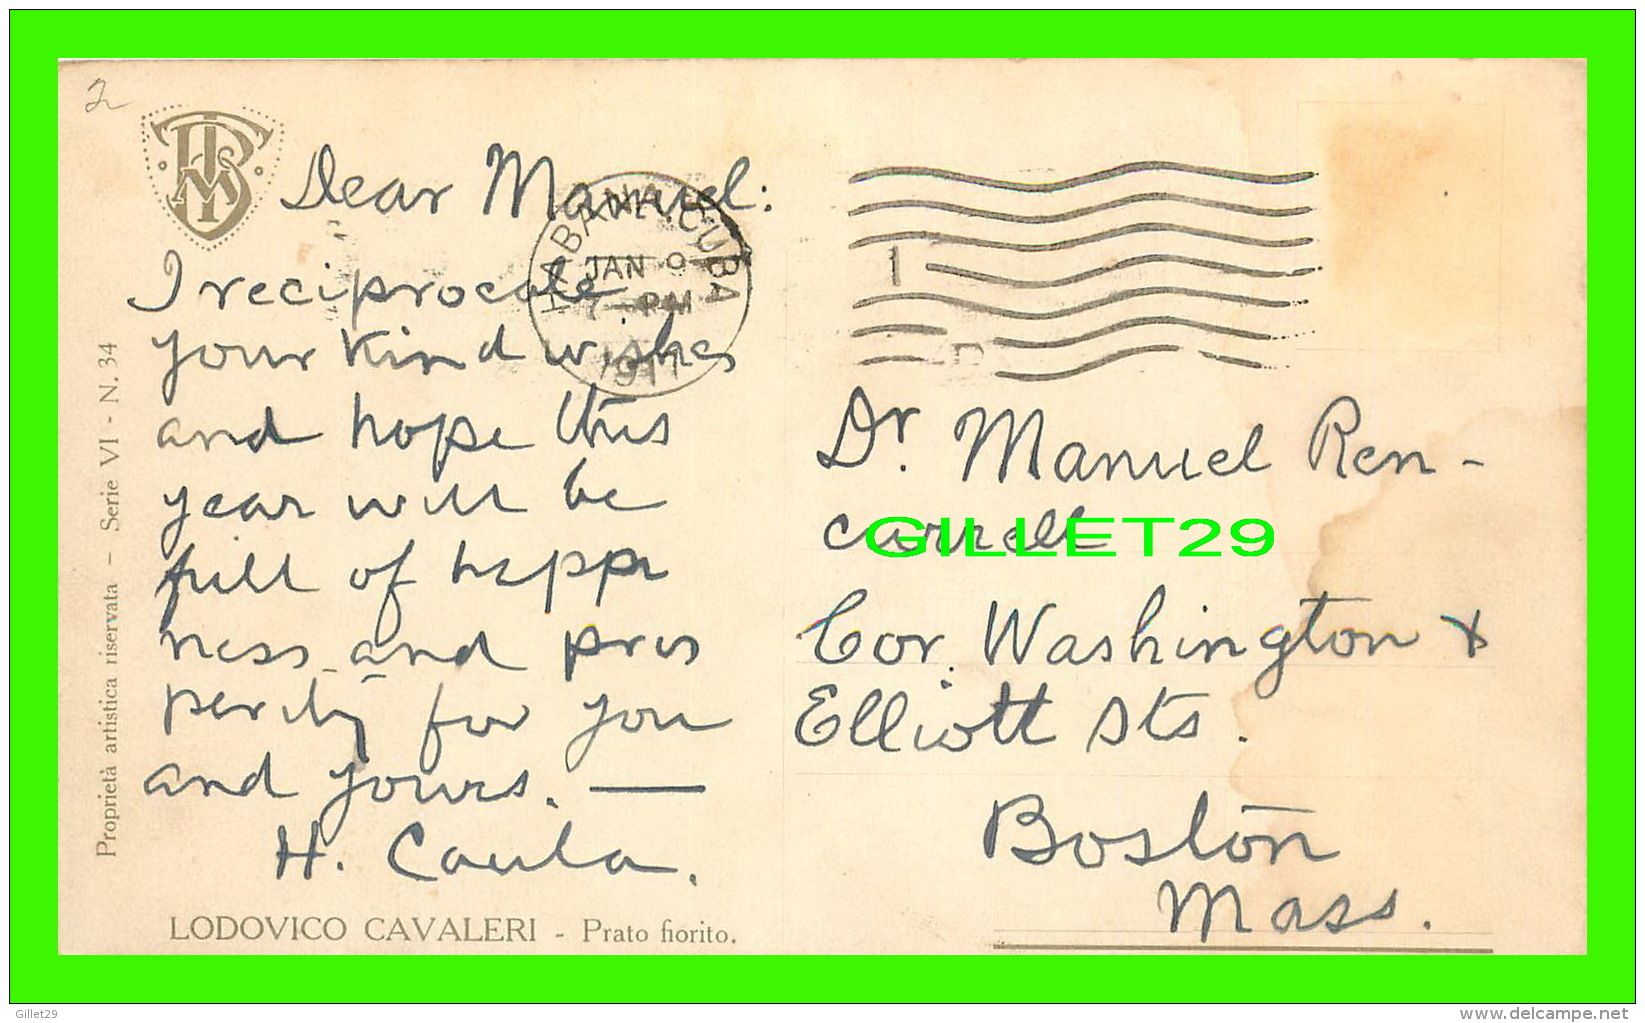 2
Dear Manuel:
I reciprocate
your kind wishes
and hope this
year will be
full of happi
ness and pros
perity for you
and yours. —
H. Caula.
HABANA, CUBA
JAN 9
7 - PM
1911
1
D
Dr. Manuel Ren-
currell
Cor. Washington &
Elliott Sts.
Boston
Mass.
GILLET29
Proprietà artistica riservata - Serie VI - N. 34
LODOVICO CAVALERI - Prato fiorito.
Gillet29
www.delcampe.net